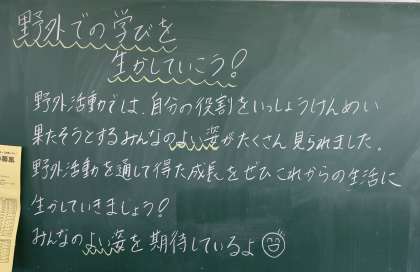 野外での学びを
生かしていこう!
野外活動では、自分の役割をいっしょうけんめい
果たそうとするみんなのよい姿がたくさん見られました。
野外活動を通して得た成長をぜひこれからの生活に
生かしていきましょう!
みんなのよい姿を期待しているよ